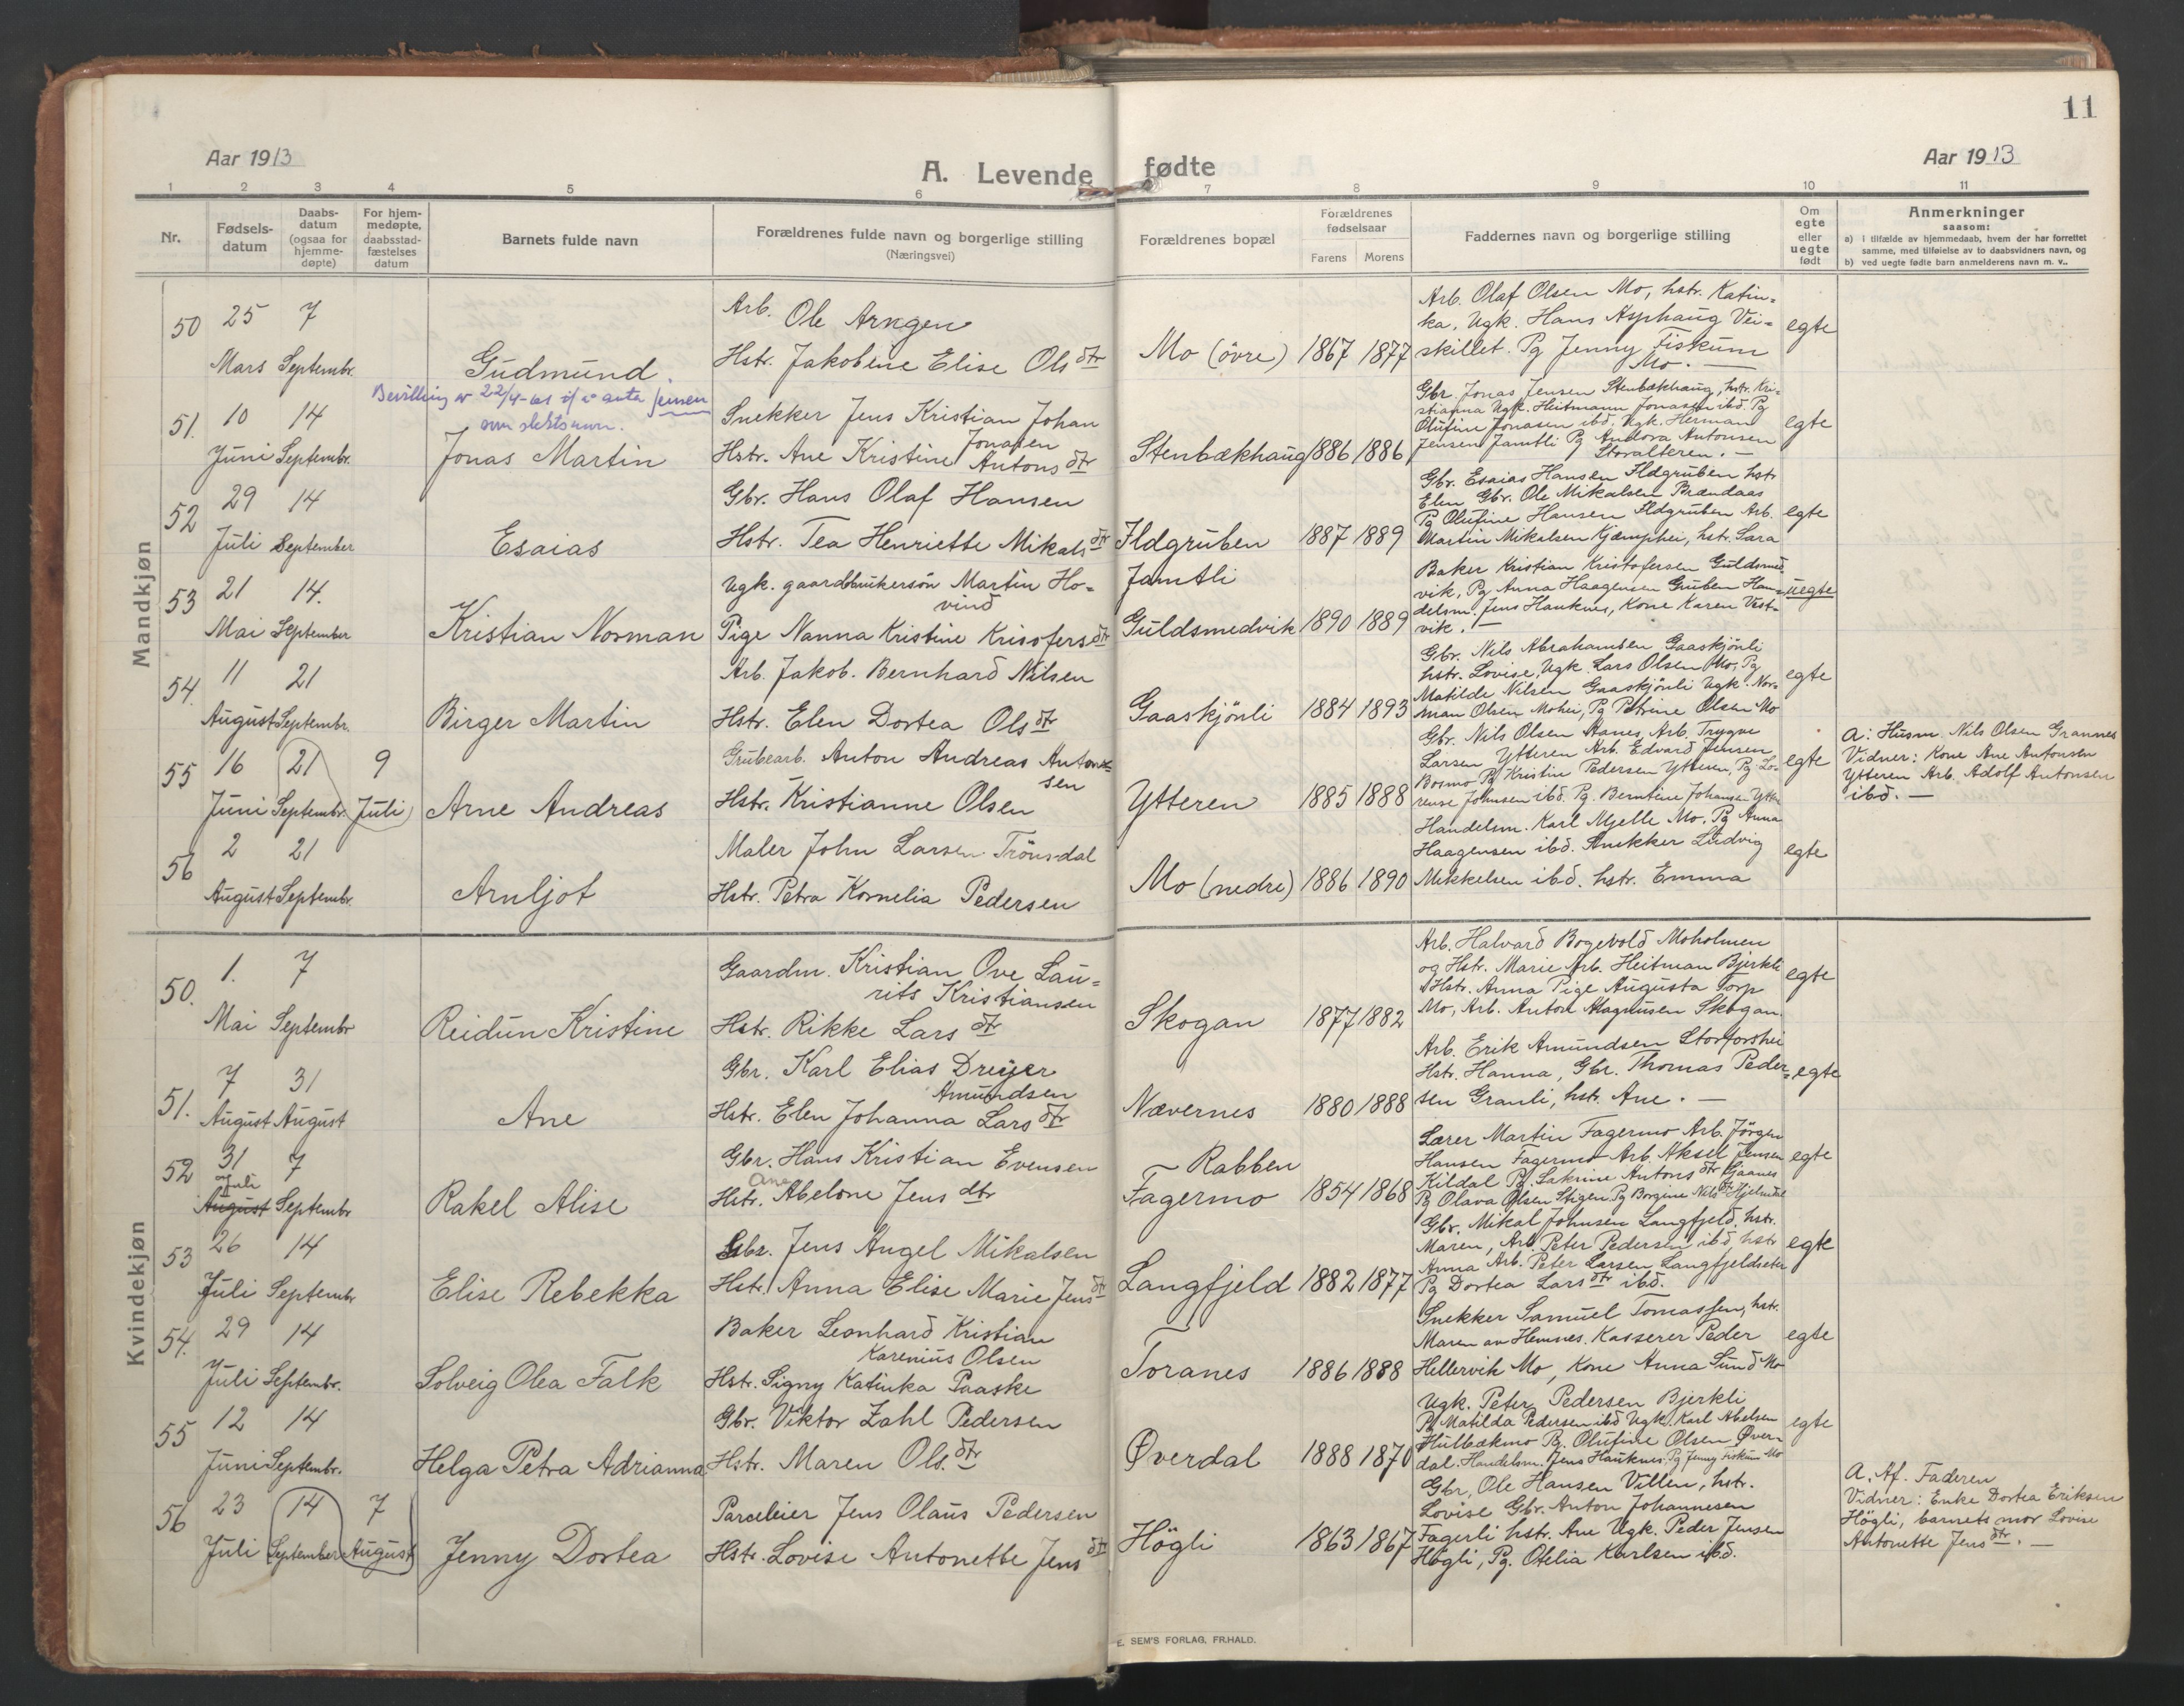 11
Aar 1913
A. Levende fødte
Aar 1913
1 2 3 4 5 6 7 8 9 10 11
Nr.
Fødsels-
datum
Daabs-
datum
(ogsaa for
hjemme-
døpte)
For hjem-
medøpte,
daabsstad-
fæstelses
datum
Barnets fulde navn
Forældrenes fulde navn og borgerlige stilling
(Næringsvei)
Forældrenes bopæl
Forældrenes
fødselsaar
Farens Morens
Faddernes navn og borgerlige stilling
Om
egte
eller
uegte
født
Anmerkninger
saasom:
a) i tilfælde av hjemmedaab, hvem der har forrettet
samme, med tilføielse av to daabsvidners navn, og
b) ved uegte fødte barn anmelderens navn m. v..
Mandkjøn
50 25 Mars 7 Septembr.
Gudmund
Arb. Ole Arngen
Hstr. Jakobine Elise Olsdtr
Mo (övre) 1867 1877
Arb. Olaf Olsen Mo, hstr. Katin=
ka, Ugk. Hans Asphaug Vei=
skillet. Pg Jenny Fiskum
Mo. —
egte
Bevilling av 22/4-
som slektsnavn.
51. 10 Juni 14 Septembr.
Jonas Martin
Snekker Jens Kristian Johan
Jonassen
Hstr. Ane Kristine Antonsdtr
Stenbækhaug 1886 1886
Gbr. Jonas Jensen Stenbækhaug, hstr. Kri-
stianna Ugk. Heitmann Jonassen ibd. Pg
Olufine Jonasen ibd. Ugk. Herman
Jensen Jamtli Pg Andora Antonsen
Storalteren. —
egte
52 29 Juli 14 September
Esaias
Gbr. Hans Olaf Hansen
Hstr. Tea Henriette Mikalsdtr
Ildgruben 1887 1889
Gbr. Esaias Hansen Ildgruben hstr
Elen Gbr. Ole Mikalsen Brændaas
Pg Olufine Hansen Ildgruben Arb.
Martin Mikalsen Kjæmphei, hstr. Sara
egte
53 21 Mai 14. September
Kristian Norman
Ugk. gaardbrukersön Martin Ho=
vind
Pige Nanna Kristine Kristofersdtr
Jamtli
Guldsmedvik 1890 1889
Baker Kristian Kristofersen Guldsmed
vik, Pg Anna Haagensen Gruben Han=
delsm. Jens Hauknes, Kone Karen Vest=
vik. —
uegte
54. 11 August 21 Septembr.
Birger Martin
Arb. Jakob. Bernhard Nilsen
Hstr. Elen Dortea Olsdtr
Gaaskjönli 1884 1893
Gbr. Nils Abrahamsen Gaaskjönli
hstr. Lovise, Ugk. Lars Olsen Mo, Pg
Matilde Nilsen Gaaskjönli Ugk. Nor=
man Olsen Mohei, Pg Petrine Olsen Mo
egte
55 16 Juni 21 Septembr. 9 Juli
Arne Andreas
Grubearb. Anton Andreas Anton=
sen
Hstr. Kristianne Olsen
Ytteren 1885 1888
Gbr. Nils Olsen Hanes, Arb. Trygve
Larsen Ytteren Arb. Edvard Jensen
Bosmo Pg Kristin Pedersen Ytteren, Pg Lo=
rense Johnsen ibd. Pg. Berntine Johansen Ytter
egte
a: Husm. Nils Olsen Grannes
Vidner: Kone Ane Antonsen
Ytteren Arb. Adolf Antonsen
ibd. —
56 2 August 21 Septembr.
Arnljot
Maler John Larsen Trönsdal
Hstr. Petra Kornelia Pedersen
Mo (nedre) 1886 1890
Handelsm. Karl Mjelle Mo, Pg Anna
Haagensen ibd. Snekker Ludvig
Mikkelsen ibd. hstr. Emma
egte
Kvindekjøn
50. 1. Mai 7 Septembr
Reidun Kristine
Gaardm. Kristian Ove Lau=
rits Kristiansen
Hstr. Rikke Larsdtr
Skogan 1877 1882
Arb. Halvard Bogevold Moholmen
og Hstr. Marie Arb. Heitman Bjerkli
Hstr. Anna Pige Augusta Torp
Mo, Arb. Anton Magnusen Skogan.
egte
51. 7 August 31 August
Ane
Gbr. Karl Elias Dreyer
Amundsen
Hstr. Elen Johanna Larsdtr
Nævernes 1880 1888
Arb. Erik Amundsen Storforshei
Hstr. Hanna, Gbr. Thomas Peder=
sen Granli, hstr. Ane. —
egte
52 31 Juli August 7 Septembr
Rakel Alise
Gbr. Hans Kristian Evensen
Ane
Hstr. Abelone Jensdtr
Rabben
Fagermo 1854 1868
Lærer Martin Fagermo Arb. Jörgen
Hansen Fagermo Arb. Aksel Jensen
Kildal Pg. Sakrine Antonsdtr Gaanes
Pg Olava Olsen Stigen Pg Borgine Nilsdtr Hjelmdal
egte
53 26 Juli 14 Septembr
Elise Rebekka
Gbr. Jens Angel Mikalsen
Hstr. Anna Elise Marie Jensdtr
Langfjeld 1882 1877
Gbr. Mikal Johnsen Langfjeld, hstr.
Maren, Arb. Peter Pedersen ibd, hstr
Anna Arb. Peter Larsen Langfjeldseter
Pg Dortea Larsdtr ibd.
egte
54. 29 Juli 14 Septembr.
Solveig Olea Falk
Baker Leonhard Kristian
Karenius Olsen
Hstr. Signy Katinka Paaske
Toranes 1886 1888
Snekker Samuel Tomassen, hstr.
Maren av Hemnes. Kasserer Peder
Hellervik Mo, Kone Anna Sund Mo
egte
55 12 Juni 14 Septembr.
Helga Petra Adrianna
Gbr. Viktor Zahl Pedersen
Hstr. Maren Ols.dtr
Øverdal 1888 1870
Ugk. Peter Pedersen Bjerkli
Pg Matilda Pedersen ibd Ugk. Karl Abelsen
Hulbækmo Pg. Olufine Olsen Øver=
dal. Handelsm. Jens Hauknes. Pg Jenny Fiskum Mo
egte
56 23 Juli 14 September 7 August
Jenny Dortea
Parceleier Jens Olaus Pedersen
Hstr. Lovise Antonette Jensdtr
Högli 1863 1867
Gbr, Ole Hansen Villen, hstr.
Lovise Gbr. Anton Johannesen
Fagerli hstr. Ane Ugk. Peder Jensen
Högli, Pg. Otelia Karlsen ibd.
A. Af. Faderen
Vidner: Enke Dortea Eriksen
Högli, barnets mor Lovise
Antonette Jensdtr. —
E. SEM'S FORLAG, FR.HALD.